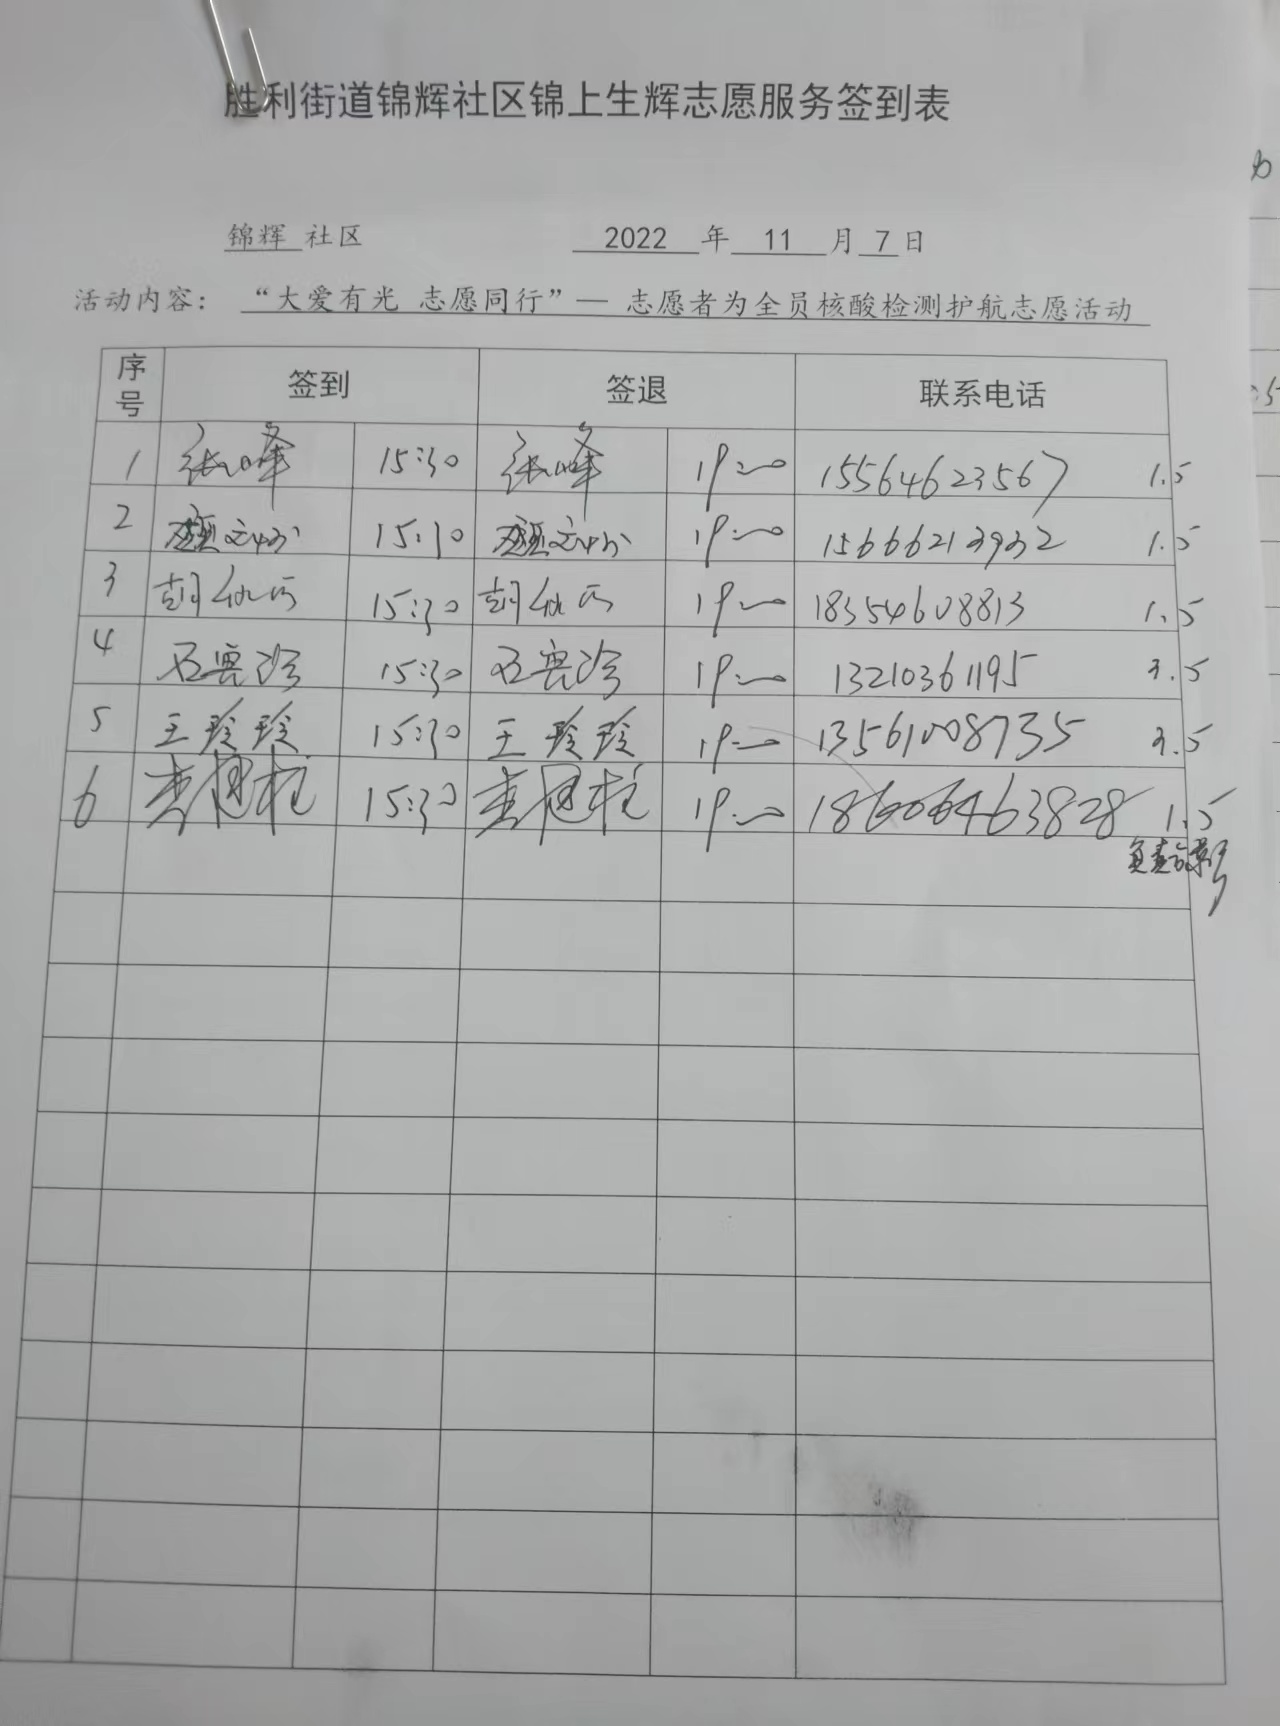 胜利街道锦辉社区锦上生辉志愿服务签到表
锦辉 社区 2022 年 11 月 7 日
活动内容： “大爱有光 志愿同行”— 志愿者为全员核酸检测护航志愿活动
序号 签到 签退 联系电话
1 张峰 15:30 张峰 19:00 15564623567 1.5
2 15:30 19:00 1.5
3 胡仙 15:30 胡仙 19:00 18354608813 1.5
4 石 15:30 石 19:00 13210361195 3.5
5 王玲玲 15:30 王玲玲 19:00 13561008735 3.5
6 李建柱 15:30 李建柱 19:00 18606463828 1.5
负责